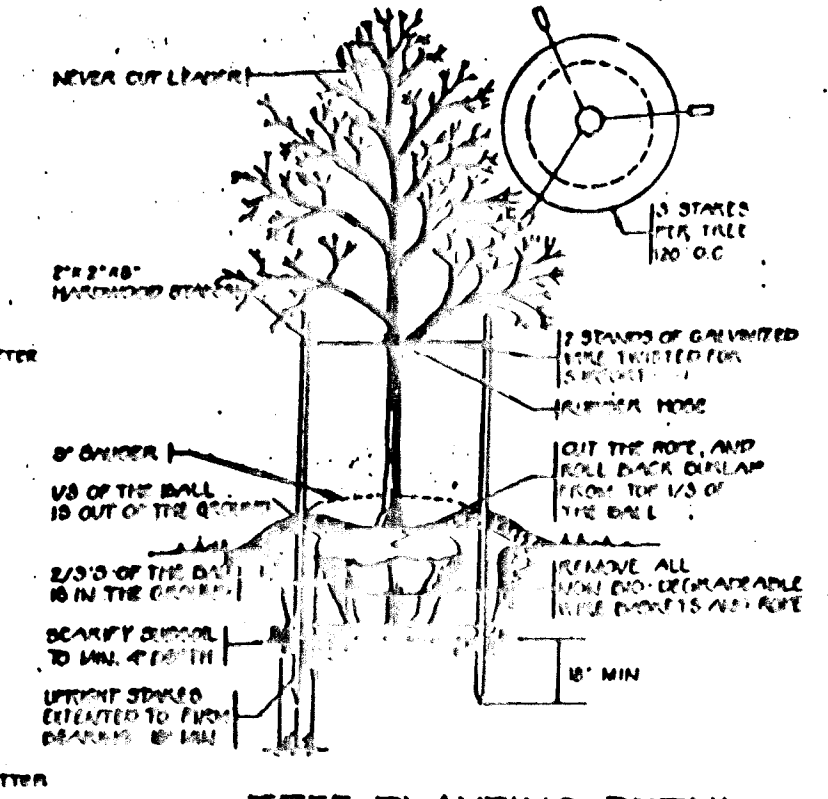 NEVER CUT LEADER
3 STAKES
PER TREE
120° O.C
2"x 2" x 8"
HARDWOOD STAKES
TTER
2 STANDS OF GALVINIZED
WIRE TWISTED FOR
SUPPORT
RUBBER HOSE
8" SAUCER
CUT THE ROPE, AND
ROLL BACK BURLAP
FROM TOP 1/3 OF
THE BALL
1/3 OF THE BALL
IS OUT OF THE GROUND
2/3'S OF THE BALL
IS IN THE GROUND
REMOVE ALL
NON BIO-DEGRADEABLE
WIRE BASKETS AND ROPE
SCARIFY SUBSOIL
TO MIN. 4" DEPTH
18" MIN
UPRIGHT STAKES
EXTENTED TO FIRM
BEARING 18" MIN
TTER
TREE PLANTING DETAIL